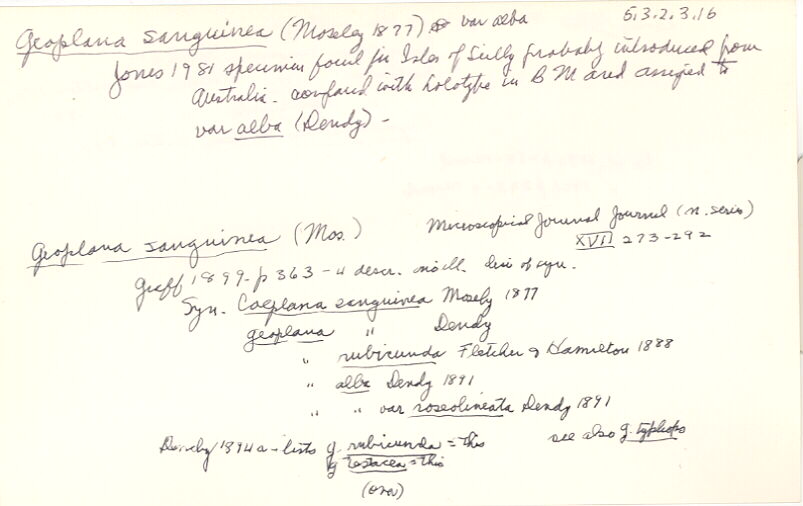 Geoplana sanguinea (Moseley 1877) var alba 5.3.2.3.16
Jones 1981 specimen found in Isles of Scilly probably introduced from
Australia. compared with holotype in B M and assigned to
var alba (Dendy) -
Geoplana sanguinea (Mos.) Microscopical Journal Journal (n. series)
XVII 273-292
Graff 1899. p 363-4 descr. no ill. disc of syn.
Syn. Caeplana sanguinea Moseley 1877
geoplana " Dendy
" rubicunda Fletcher & Hamilton 1888
" alba Dendy 1891
" " var roseolineata Dendy 1891
Dendy 1894a - lists g. rubicunda = this see also g. typhlops
g testacea = this
(over)